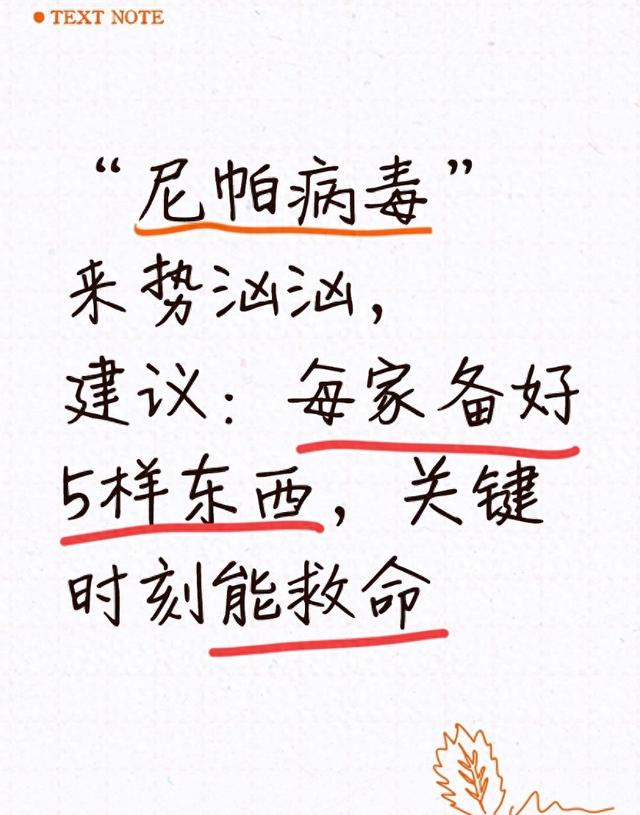 TEXT NOTE
“尼帕病毒”
来势汹汹，
建议：每家备好
5样东西，关键
时刻能救命